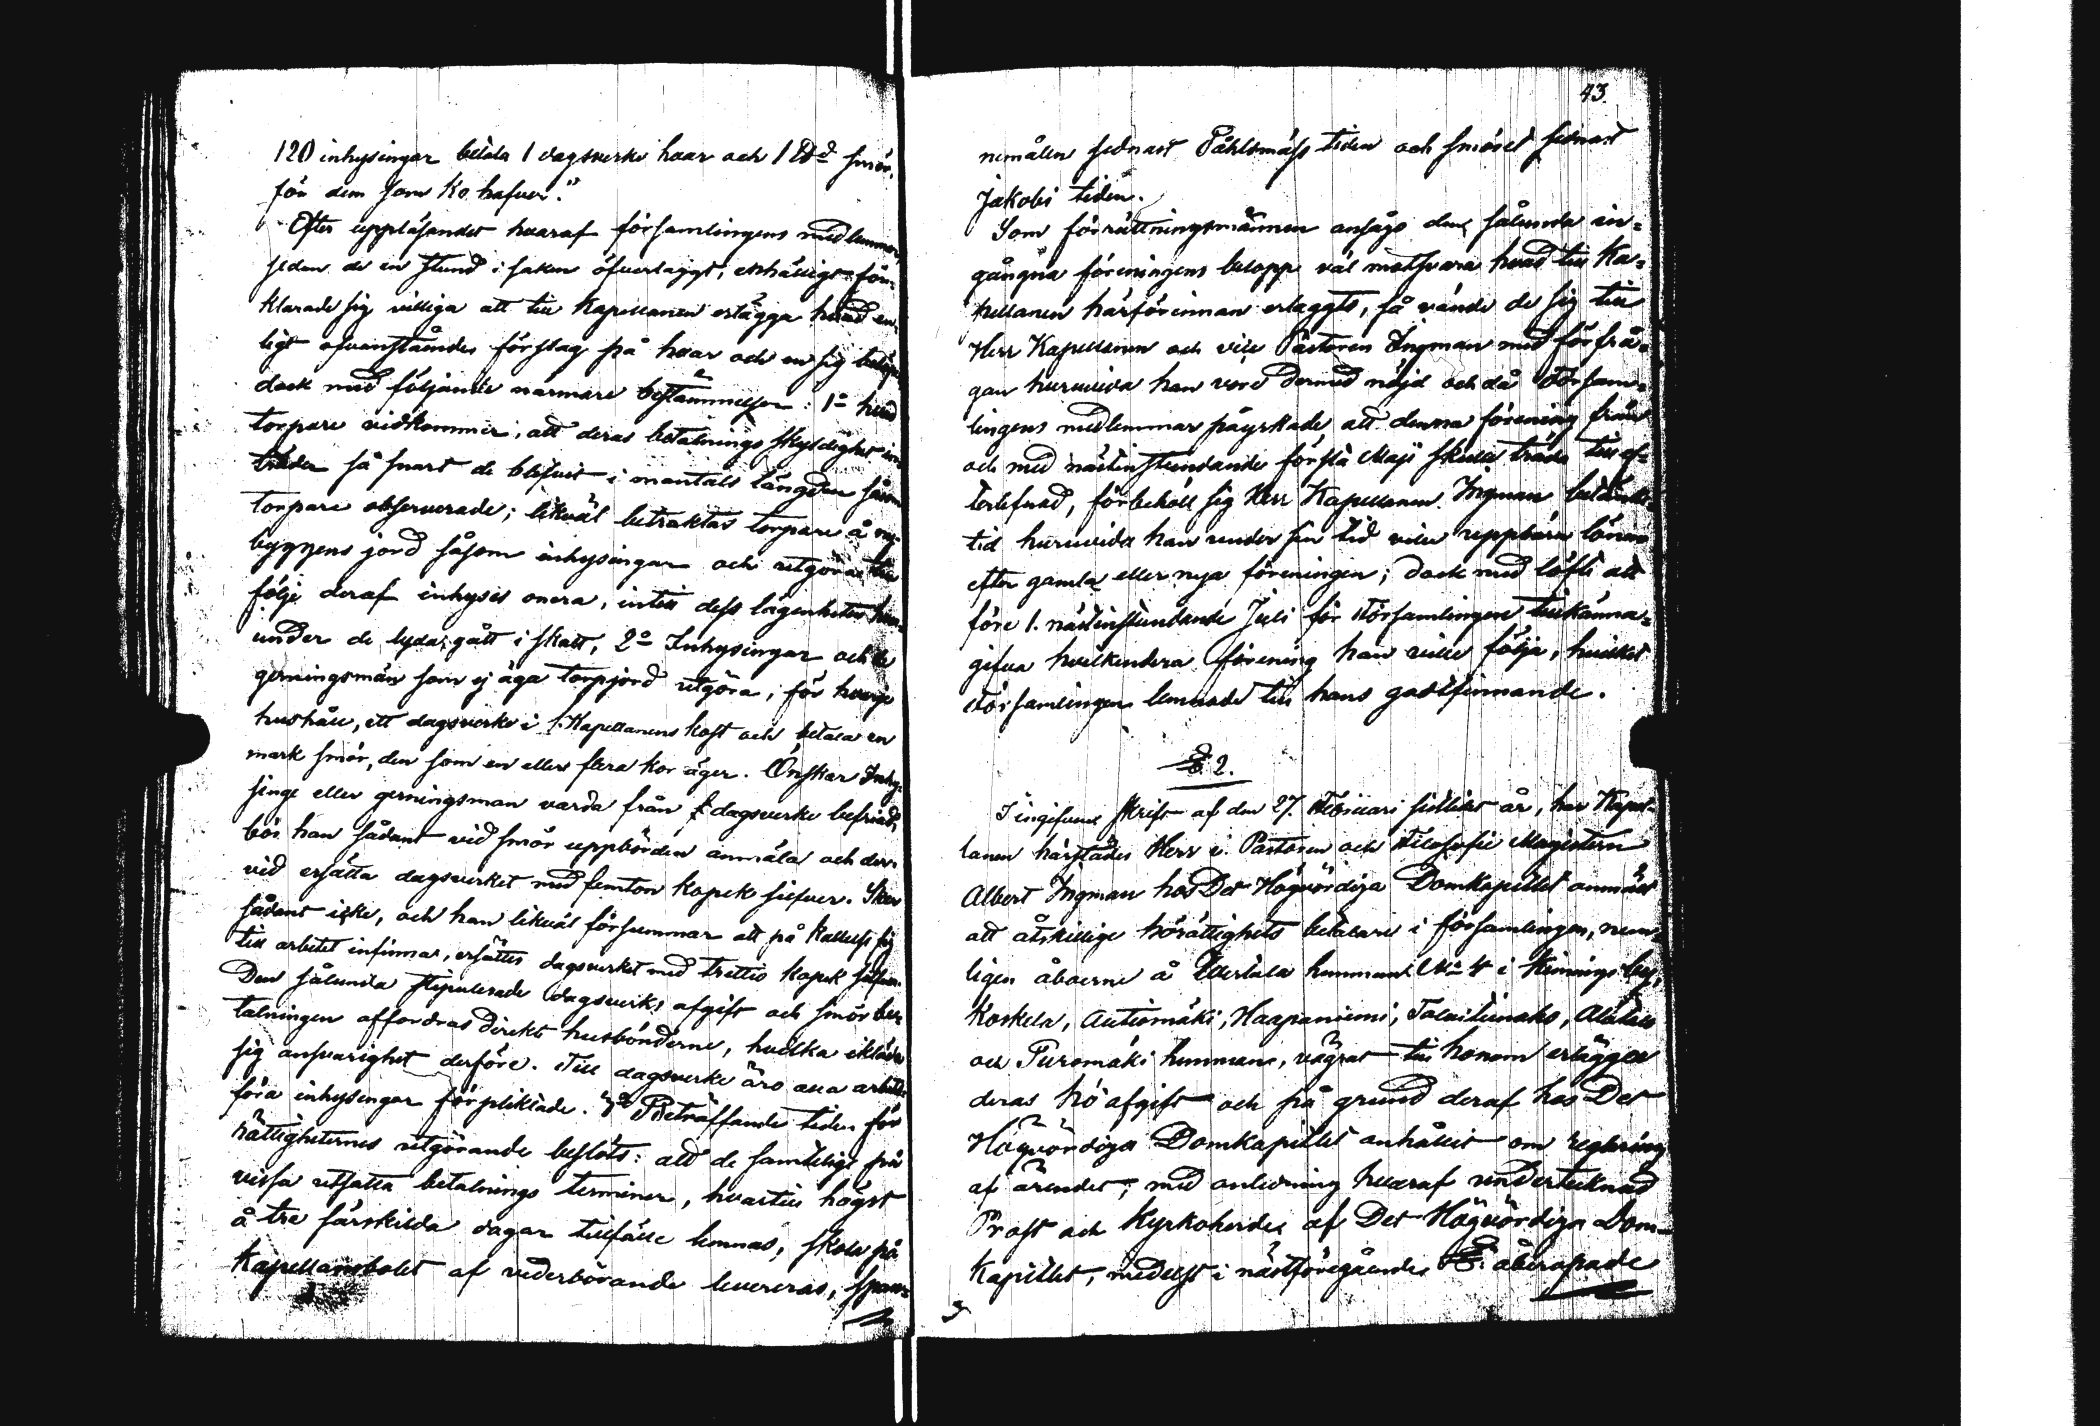 120 inhysingar betala 1 dagsverke hvar och 1 ℔d smör,
för dem som Ko hafver."
Efter uppläsandet hvaraf församlingens medlemmar,
sedan de en stund i saken öfverlaggt, enhälligt för-
klarade sig villiga att till Kapellanen erlägga hvad en-
ligt ofvanstående förslag på hvar och en sig belöper
dock med följande närmare bestämmelser: 1o hvad
torpare vidkommer, att deras betalnings skyldighet in-
träder så snart de blifvit i mantals längden såsom
torpare observerade; likväl betraktas torpare å ny-
byggens jord såsom inhysingar och utgöra till
följe deraf inhysis onera, intill dess lägenheten hvar-
under de lyda, gått i skatt, 2o Inhysingar och de
gerningsmän som ej äga torpjord utgöra, för hvarje
hushåll, ett dagsverke i Kapellanens kost och betala en
mark smör, den som en eller flera kor äger. Önskar Inhy-
singe eller gerningsman varda från dagsverke befriad,
bör han sådant vid smör uppbörden anmäla och der-
vid ersätta dagsverket med femton kopek silfver. Sker
sådant icke, och han likväl försummar att på kallelse sig
till arbetet infinna, ersättes dagsverket med trettio kopek silfver.
Den sålunda stipulerade dagsverks afgift och smör be-
talningen affordras direkte husbönderne, hvilka ikläda
sig ansvarighet derföre. Till dagsverke äro alla arbets-
föra inhysingar förpliktade. 3o Beträffande tiden för
rättigheternes utgörande beslöts: att de samtelige på
vissa utsatta betalnings terminer, hvartill högst
å tre särskilda dagar tillfälle lemnas, skola på
Kapellansbolet af vederbörande levereras, span-
43.
nemålen sednast Påhlsmäss tiden och smöret sednast
Jakobi tiden.
Som förrättningsmännen ansågo den sålunda in-
gångna föreningens belopp väl motsvara hvad till Ka-
pellanen härförinnan erlaggts, så vände de sig till
Herr Kapellanen och vice Pastoren Ingman med förfrå-
gan huruvida han vore dermed nöjd och då Försam-
lingens medlemmar påyrkade att denna förening från
och med nästinstundande första Maji skulle träda till ef-
terlefnad, förbehöll sig Herr Kapellanen Ingman betänke-
tid huruvida han under sin tid ville uppbära lönen
efter gamla eller nya föreningen; dock med löfte att
före 1. nästinstundande Juli för Församlingen tillkänna-
gifva hvilkendera förening han ville följa, hvilket
Församlingen lemnade till hans godtfinnande.
§ 2.
I ingifven skrift af den 27. Februari sistlidet år, har Kapel-
lanen härstädes Herr v. Pastoren och Filosofie Magistern
Albert Ingman hos Det Högvördiga Domkapitlet anmält
att åtskillige hörättighets betalare i församlingen, nem-
ligen åboerne å hemmanet No 4 i Kinnings by,
Koskela, Autiomäki, Haapaniemi, Alatalo
och Puromäki hemmans, vägrat till honom erlägga
deras hö afgift och på grund deraf hos Det
Högvördiga Domkapitlet anhållit om reglering
af ärendet; med anledning hvaraf undertecknad
Prost och Kyrkoherde af Det Högvördiga Dom-
Kapitlet, medelst i nästföregående §. åberopade